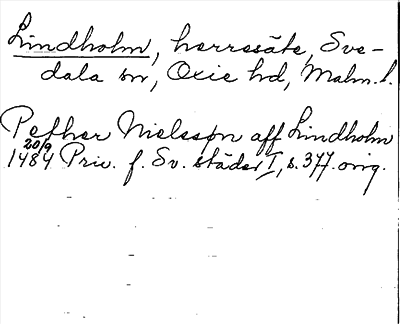 Lindholm, herresäte, Sve-
dala sn, Oxie hd, Malm. l.
Pether Nielsson aff Lindholm
20/9
1484 Priv. f. Sv. städer I, s. 377. orig.